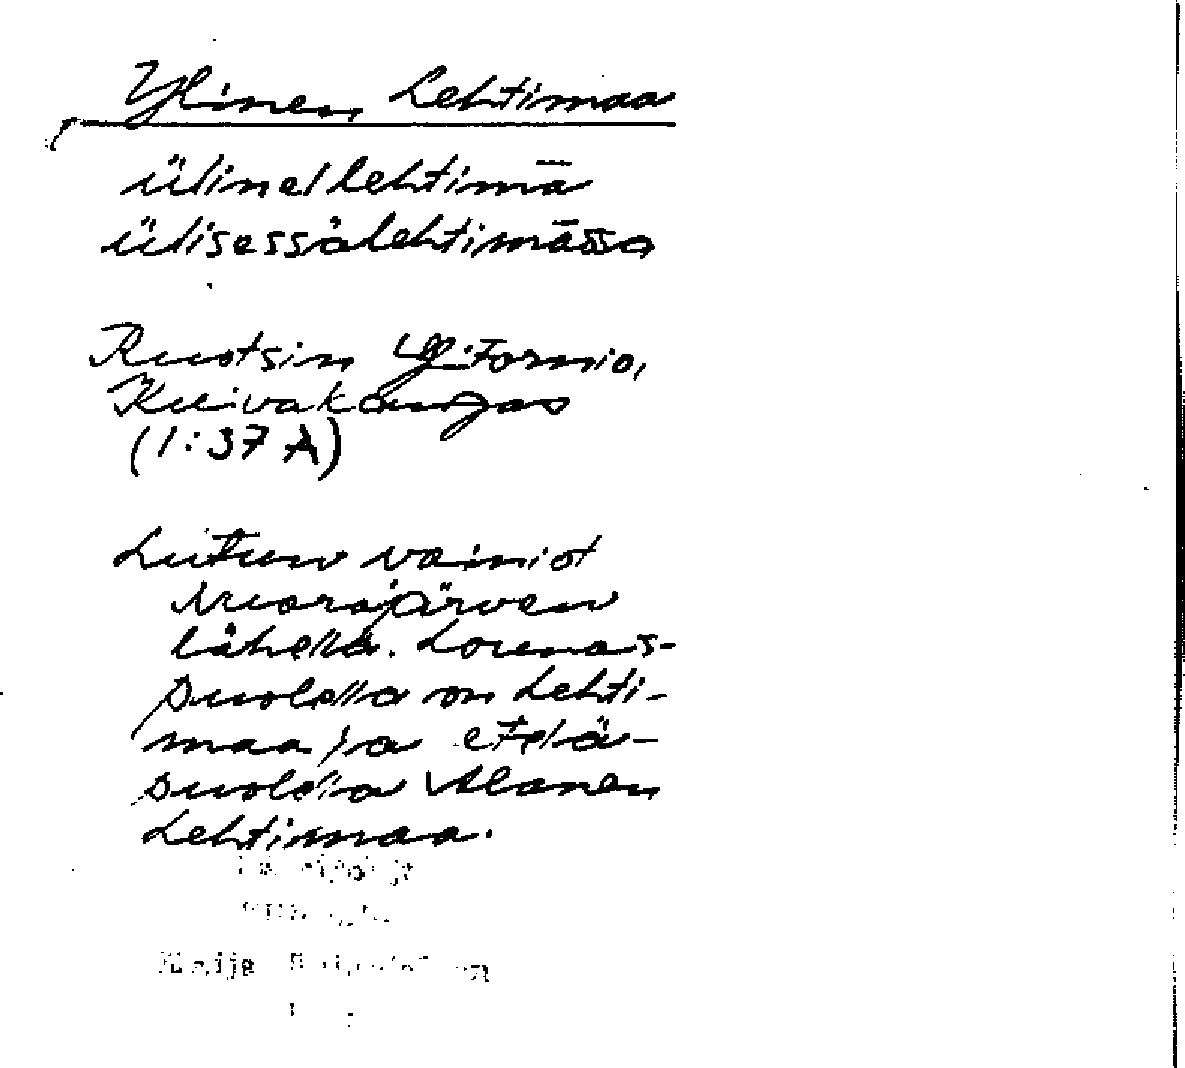 Ylinen Lehtimaa
ülinellehtimā
ülisessälehtimāssa
Ruotsin Yli-Tornio,
Kuivakangas
(1:37 A)
Lutun vainiot
Muorajärven
lähellä. Lounais-
puolella on Lehti-
maa ja etelä-
puolella Alanen
Lehtimaa.